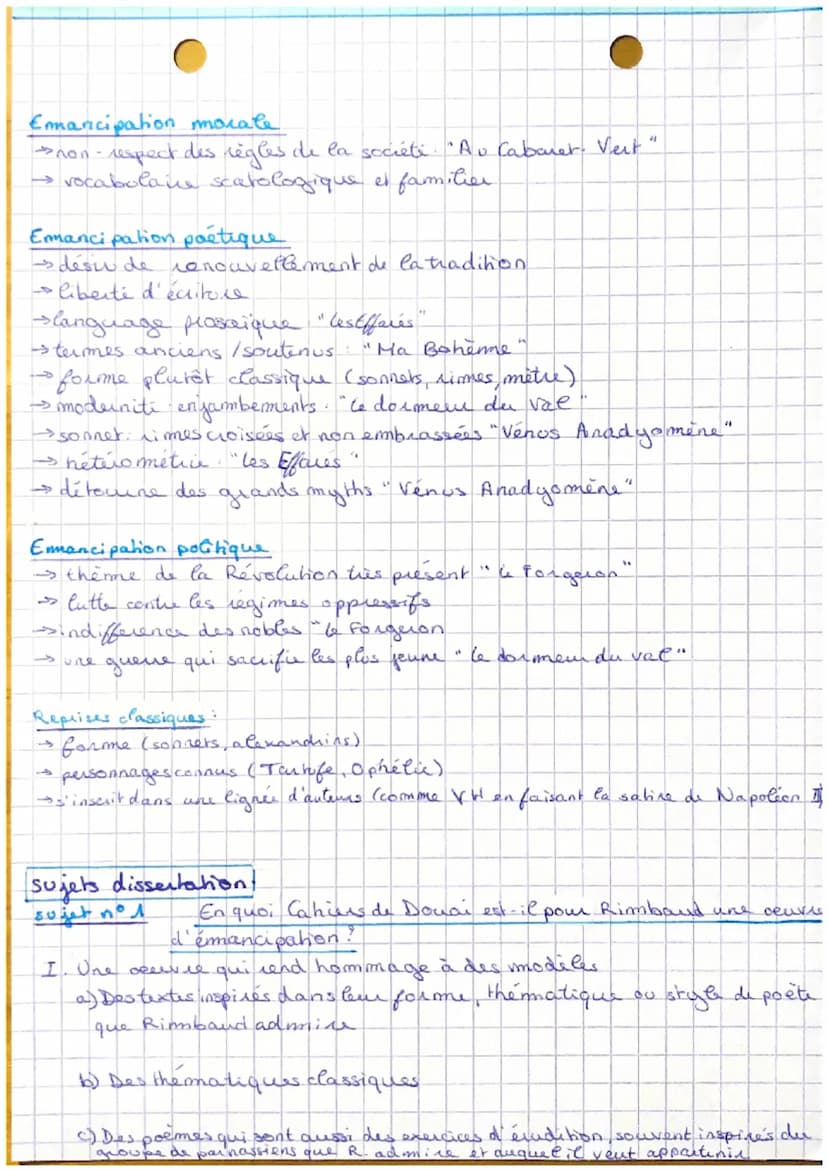 Emancipation morale
→ non-respect des règles de la société. "Au Cabaret-Vert"
→ vocabulaire scatologique et familier
Emancipation poétique
→ désir de renouvellement de la tradition
→ liberté d'écriture
→ language prosaïque "les Effarés"
→ termes anciens / soutenus : "Ma Bohème"
→ forme plutôt classique (sonnets, rimes, mètre)
→ modernité enjambements. "Le dormeur du Val"
→ sonnet : rimes croisées et non embrassées "Vénus Anadyomène"
→ hétérométrie "Les Effarés"
→ détourne des grands myths "Vénus Anadyomène"
Emancipation politique
→ thème de la Révolution très présent "Le Forgeron"
→ lutte contre les régimes oppressifs
→ indifférence des nobles "Le Forgeron
→ une guerre qui sacrifie les plus jeune "Le dormeur du val"
Reprises classiques :
→ forme (sonnets, alexandrins)
→ personnages connus (Tartufe, Ophélie)
→ s'inscrit dans une lignée d'auteurs (comme VH en faisant la satire de Napoléon III
sujets dissertation
sujet n°1 En quoi Cahiers de Douai est-il pour Rimbaud une oeuvre
d'émancipation ?
I. Une oeuvre qui rend hommage à des modèles
a) Des textes inspirés dans leur forme, thématique ou style de poète
que Rimbaud admire
b) Des thématiques classiques
c) Des poèmes qui sont aussi des exercices d'érudition, souvent inspirés du
groupe de parnassiens que R. admire et auquel il veut appartenir